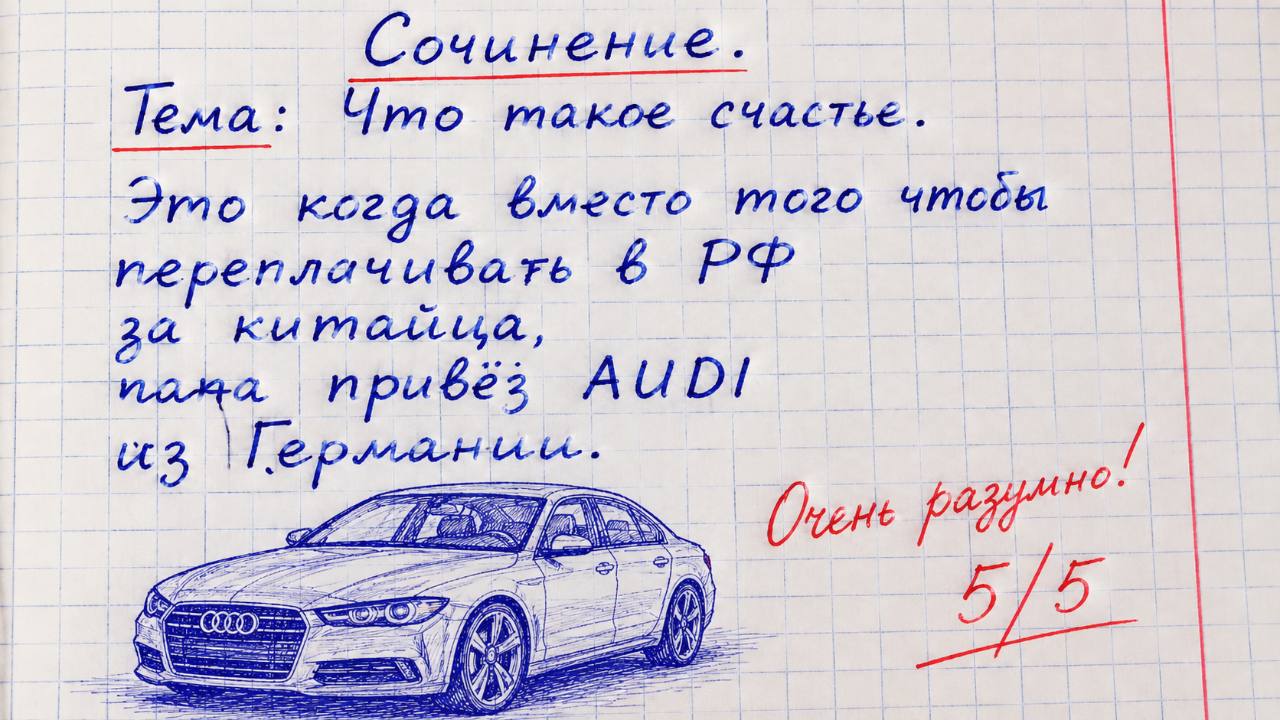 Сочинение.
Тема: Что такое счастье.
Это когда вместо того чтобы
переплачивать в РФ
за китайца,
папа привёз AUDI
из Германии.
Очень разумно!
5/5